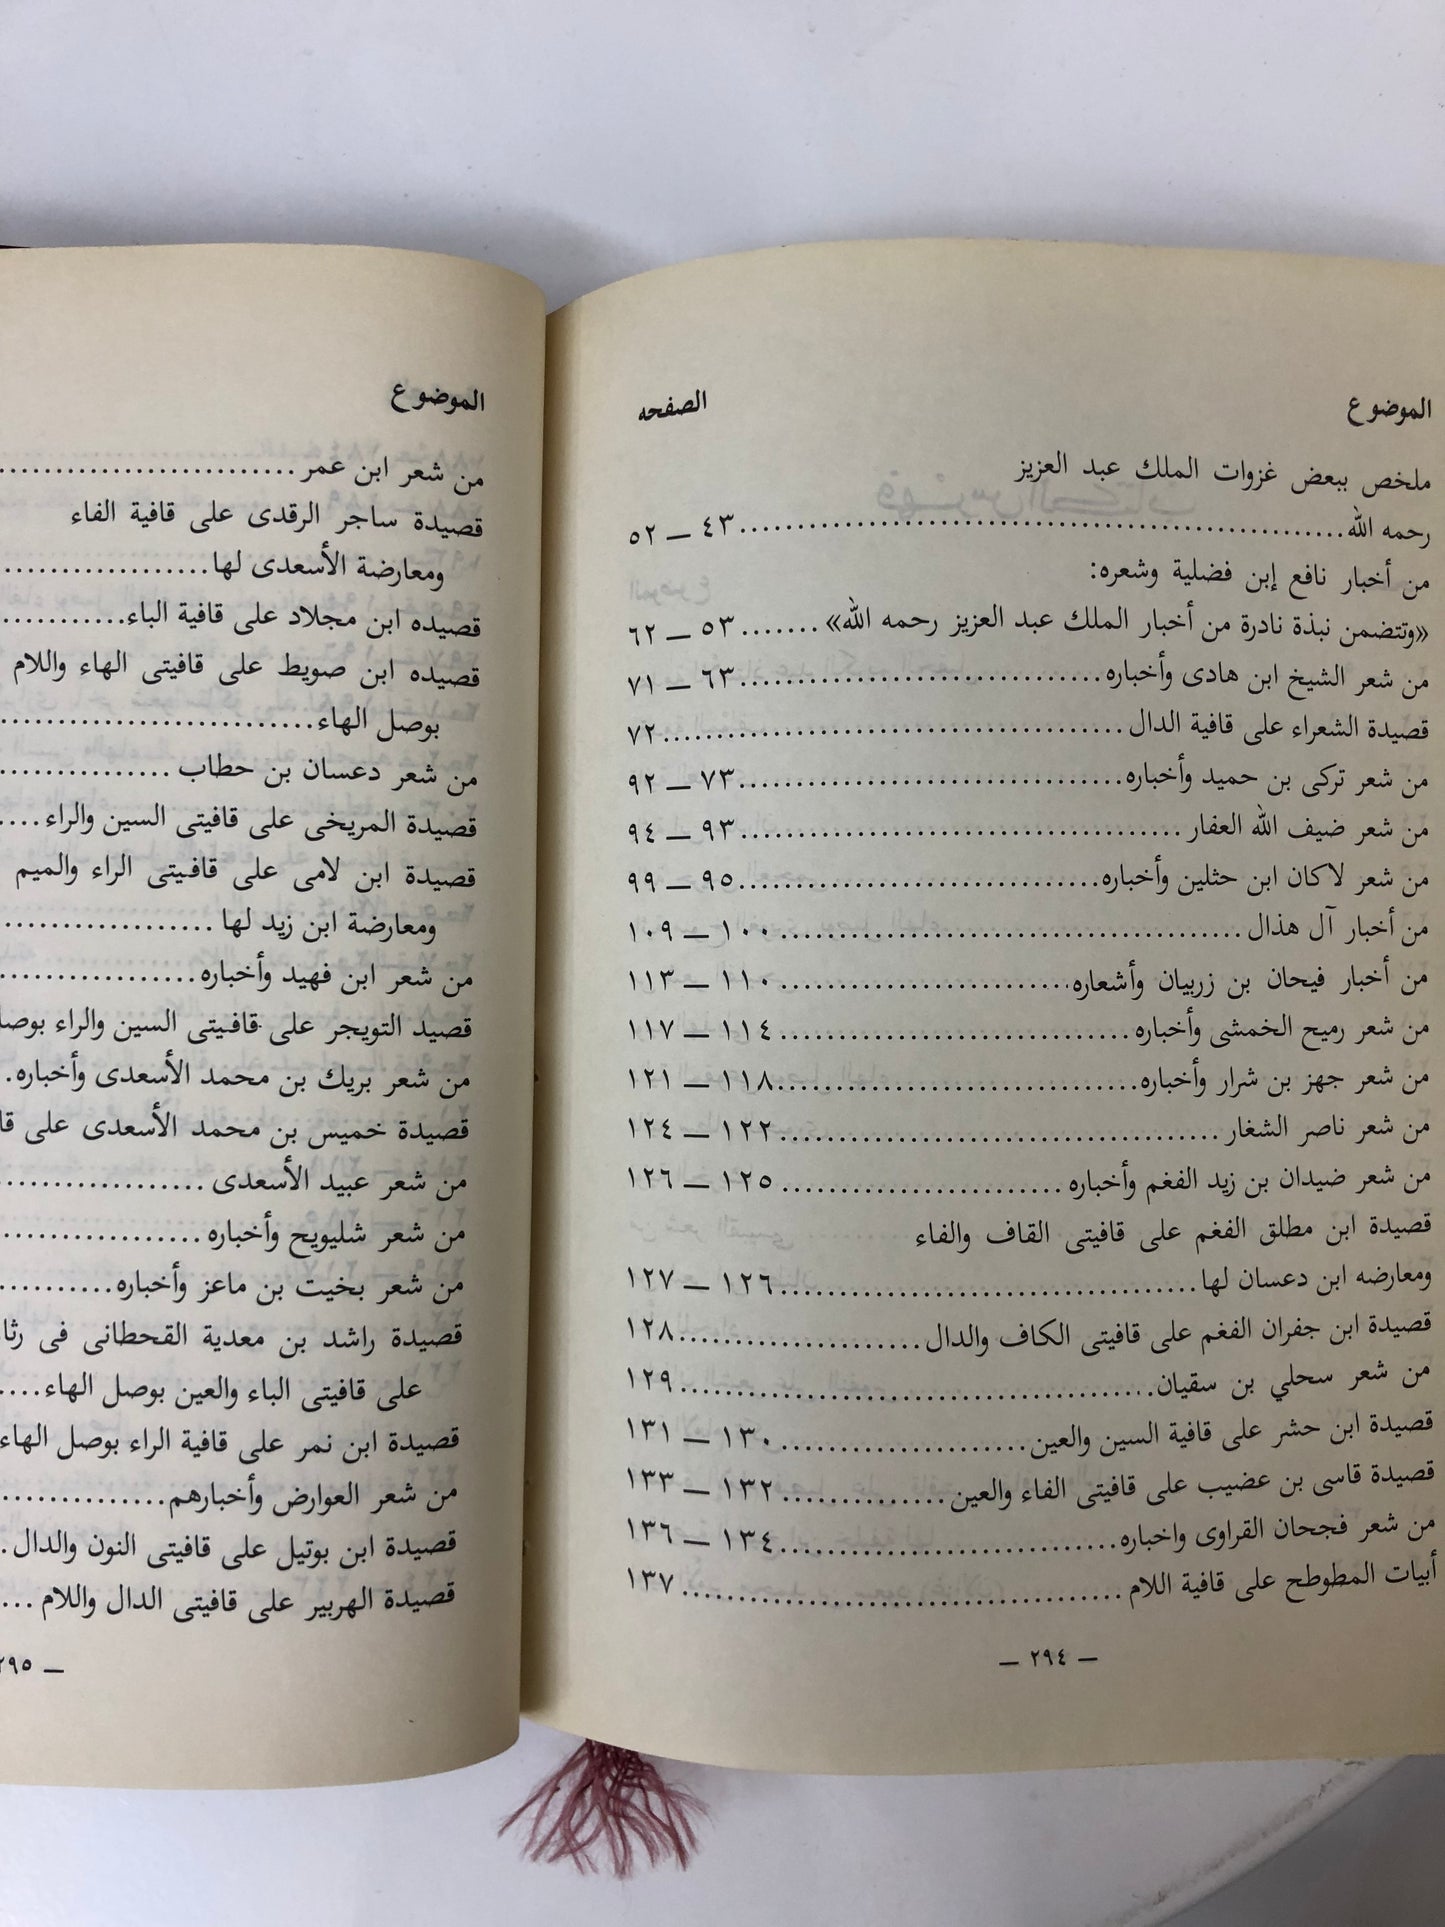 الموضوع الصفحه
ملخص ببعض غزوات الملك عبد العزيز
رحمه الله................................ ٤٣ — ٥٢
من أخبار نافع إبن فضلية وشعره:
«وتتضمن نبذة نادرة من أخبار الملك عبد العزيز رحمه الله»....... ٥٣ — ٦٢
من شعر الشيخ ابن هادى وأخباره................................ ٦٣ — ٧١
قصيدة الشعراء على قافية الدال................................ ٧٢
من شعر تركى بن حميد وأخباره................................ ٧٣ — ٩٢
من شعر ضيف الله العفار................................ ٩٣ — ٩٤
من شعر لاكان ابن حثلين وأخباره................................ ٩٥ — ٩٩
من أخبار آل هذال................................ ١٠٠ — ١٠٩
من أخبار فيحان بن زربيان وأشعاره......................... ١١٠ — ١١٣
من شعر رميح الخمشى وأخباره.............................. ١١٤ — ١١٧
من شعر جهز بن شرار وأخباره.............................. ١١٨ — ١٢١
من شعر ناصر الشغار................................ ١٢٢ — ١٢٤
من شعر ضيدان بن زيد الفغم وأخباره........................ ١٢٥ — ١٢٦
قصيدة ابن مطلق الفغم على قافيتى القاف والفاء
ومعارضه ابن دعسان لها................................ ١٢٦ — ١٢٧
قصيدة ابن جفران الفغم على قافيتى الكاف والدال..................... ١٢٨
من شعر سحلي بن سقيان................................ ١٢٩
قصيدة ابن حشر على قافية السين والعين..................... ١٣٠ — ١٣١
قصيدة قاسى بن عضيب على قافيتى الفاء والعين.............. ١٣٢ — ١٣٣
من شعر فجحان القراوى واخباره............................. ١٣٤ — ١٣٦
أبيات المطوطح على قافية اللام................................ ١٣٧
— ٢٩٤ —
الموضوع
من شعر ابن عمر..........................
قصيدة ساجر الرقدى على قافية الفاء
ومعارضة الأسعدى لها..................
قصيده ابن مجلاد على قافية الباء............
قصيده ابن صويط على قافيتى الهاء واللام
بوصل الهاء..........................
من شعر دعسان بن حطاب................
قصيدة المريخى على قافيتى السين والراء....
قصيدة ابن لامى على قافيتى الراء والميم
ومعارضة ابن زيد لها..................
من شعر ابن فهيد وأخباره.................
قصيد التويجر على قافيتى السين والراء
من شعر بريك بن محمد الأسعدى وأخباره.
قصيدة خميس بن محمد الأسعدى على
من شعر عبيد الأسعدى..................
من شعر شليويح وأخباره..................
من شعر بخيت بن ماعز وأخباره...........
قصيدة راشد بن معدية القحطانى فى
على قافيتى الباء والعين بوصل الهاء....
قصيدة ابن نمر على قافية الراء بوصل الهاء
من شعر العوارض وأخبارهم..............
قصيدة ابن بوتيل على قافيتى النون والدال.
قصيدة الهربير على قافيتى الدال واللام ...
٢٩٥ —